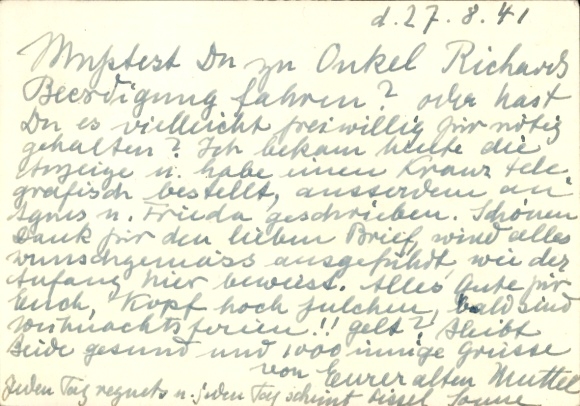 d. 27.8.41
Musstest Du zu Onkel Richards
Beerdigung fahren? oder hast
Du es vielleicht freiwillig für nötig
gehalten? Ich bekam heute die
Anzeige u. habe einen Kranz tele-
grafisch bestellt, ausserdem an
Agnes u. Frieda geschrieben. Schönen
Dank für den lieben Brief, wird alles
wunschgemäss ausgeführt, wie der
Anfang hier beweist. Alles Gute für
Euch, Kopf hoch Julchen, bald sind
Weihnachtsferien!! gelt? Bleibt
Beide gesund und 1000 innige Grüsse
von Eurer alten Muttel
Jeden Tag regnets u. jeden Tag scheint bissel Sonne